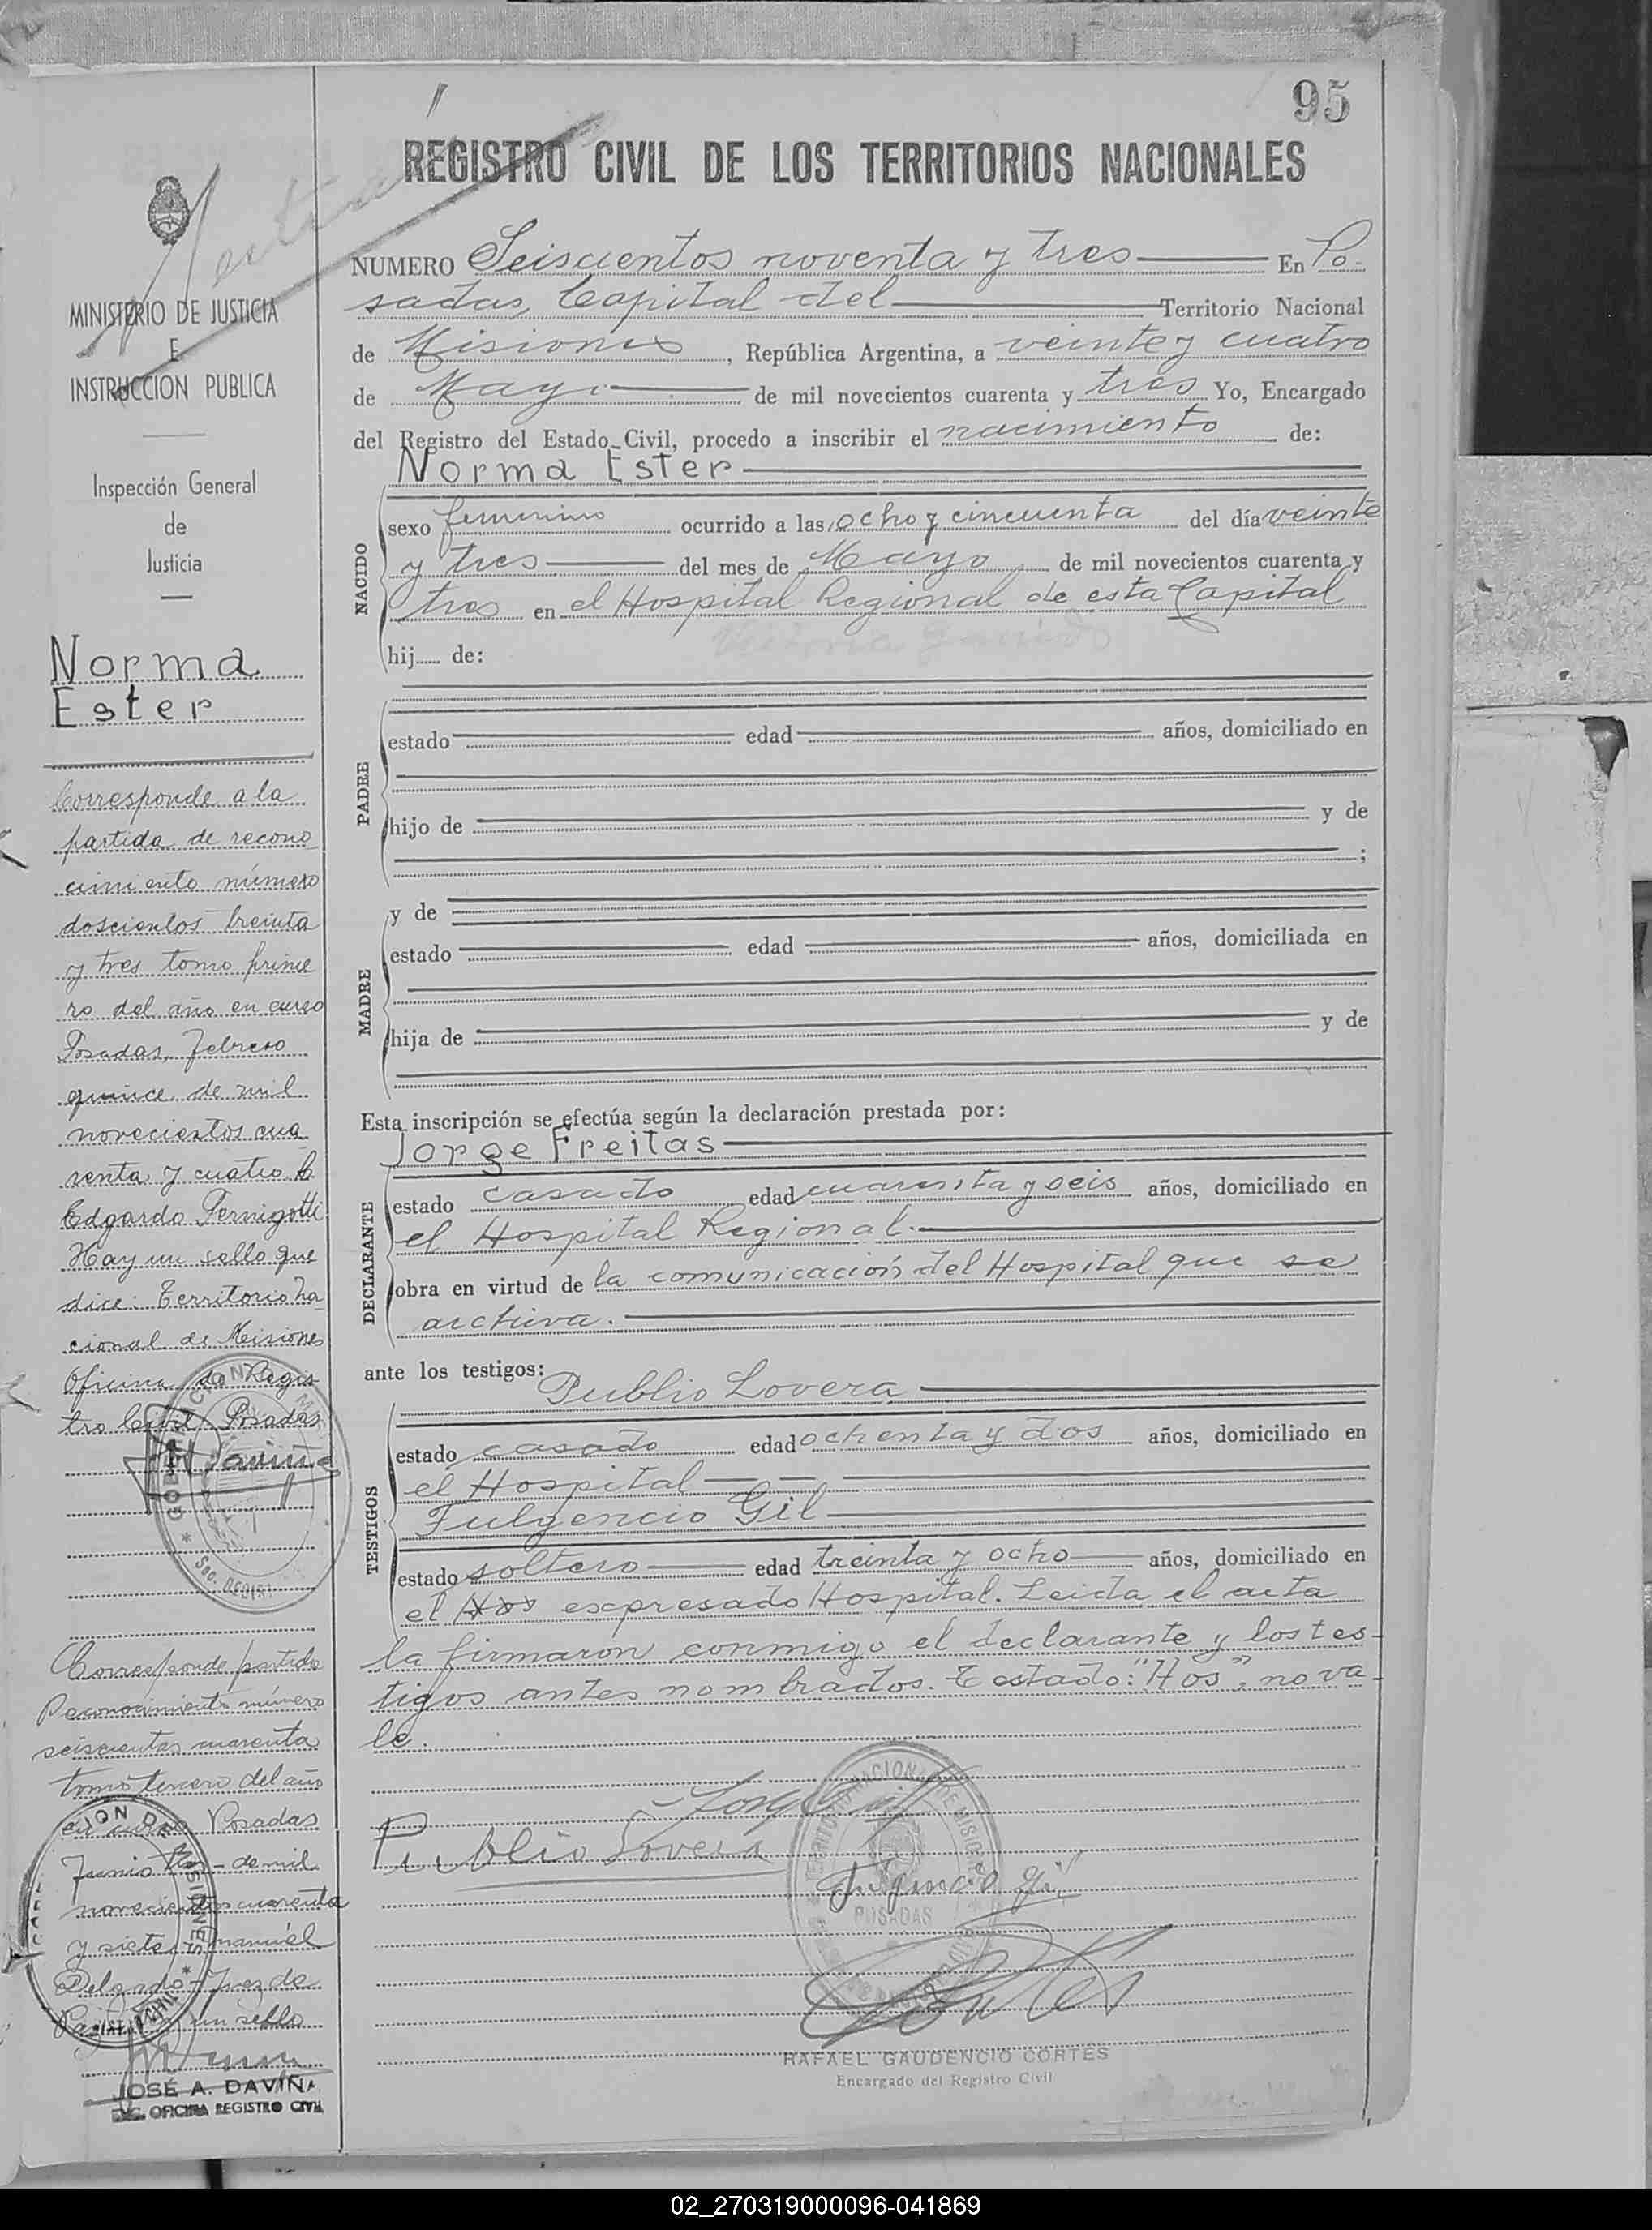 95
REGISTRO CIVIL DE LOS TERRITORIOS NACIONALES
NUMERO Seiscientos noventa y tres En Po-
sadas, Capital del Territorio Nacional
de Misiones, República Argentina, a veinte y cuatro
de Mayo de mil novecientos cuarenta y tres Yo, Encargado
del Registro del Estado Civil, procedo a inscribir el nacimiento de:
Norma Ester
NACIDO
sexo femenino ocurrido a las ocho y cincuenta del día veinte
y tres del mes de Mayo de mil novecientos cuarenta y
tres en el Hospital Regional de esta Capital
hij de:
PADRE
estado edad años, domiciliado en
hijo de y de
;
MADRE
y de
estado edad años, domiciliada en
hija de y de
Esta inscripción se efectúa según la declaración prestada por:
Jorge Freitas
DECLARANTE
estado casado edad cuarenta y seis años, domiciliado en
el Hospital Regional.
obra en virtud de la comunicación del Hospital que se
archiva.
ante los testigos:
Publio Lovera
TESTIGOS
estado casado edad ochenta y dos años, domiciliado en
el Hospital
Fulgencio Gil
estado soltero edad treinta y ocho años, domiciliado en
el Hos expresado Hospital. Leida el acta
la firmaron conmigo el declarante y los tes-
tigos antes nombrados. Testado: "Hos", no va-
le.
Publio Lovera
Fulgencio Gil
POSADAS
RAFAEL GAUDENCIO CORTES
Encargado del Registro Civil
MINISTERIO DE JUSTICIA
E
INSTRUCCION PUBLICA
Inspección General
de
Justicia
Norma
Ester
Corresponde a la
partida de recono
cimiento número
doscientos treinta
y tres tomo prime
ro del año en curso
Posadas, Febrero
quince de mil
novecientos cua
renta y cuatro C.
Edgardo Pernigotti
Hay un sello que
dice: Territorio Na
cional de Misiones
Oficina de Regis
tro Civil Posadas
Corresponde partida
Reconocimiento número
seiscientos cuarenta
tomo tercero del año
en curso Posadas
Junio de mil
novecientos cuarenta
y siete manuel
Delgado Juez de
Paz un sello
JOSÉ A. DAVIÑA
ENC. OFICINA REGISTRO CIVIL
02_270319000096-041869